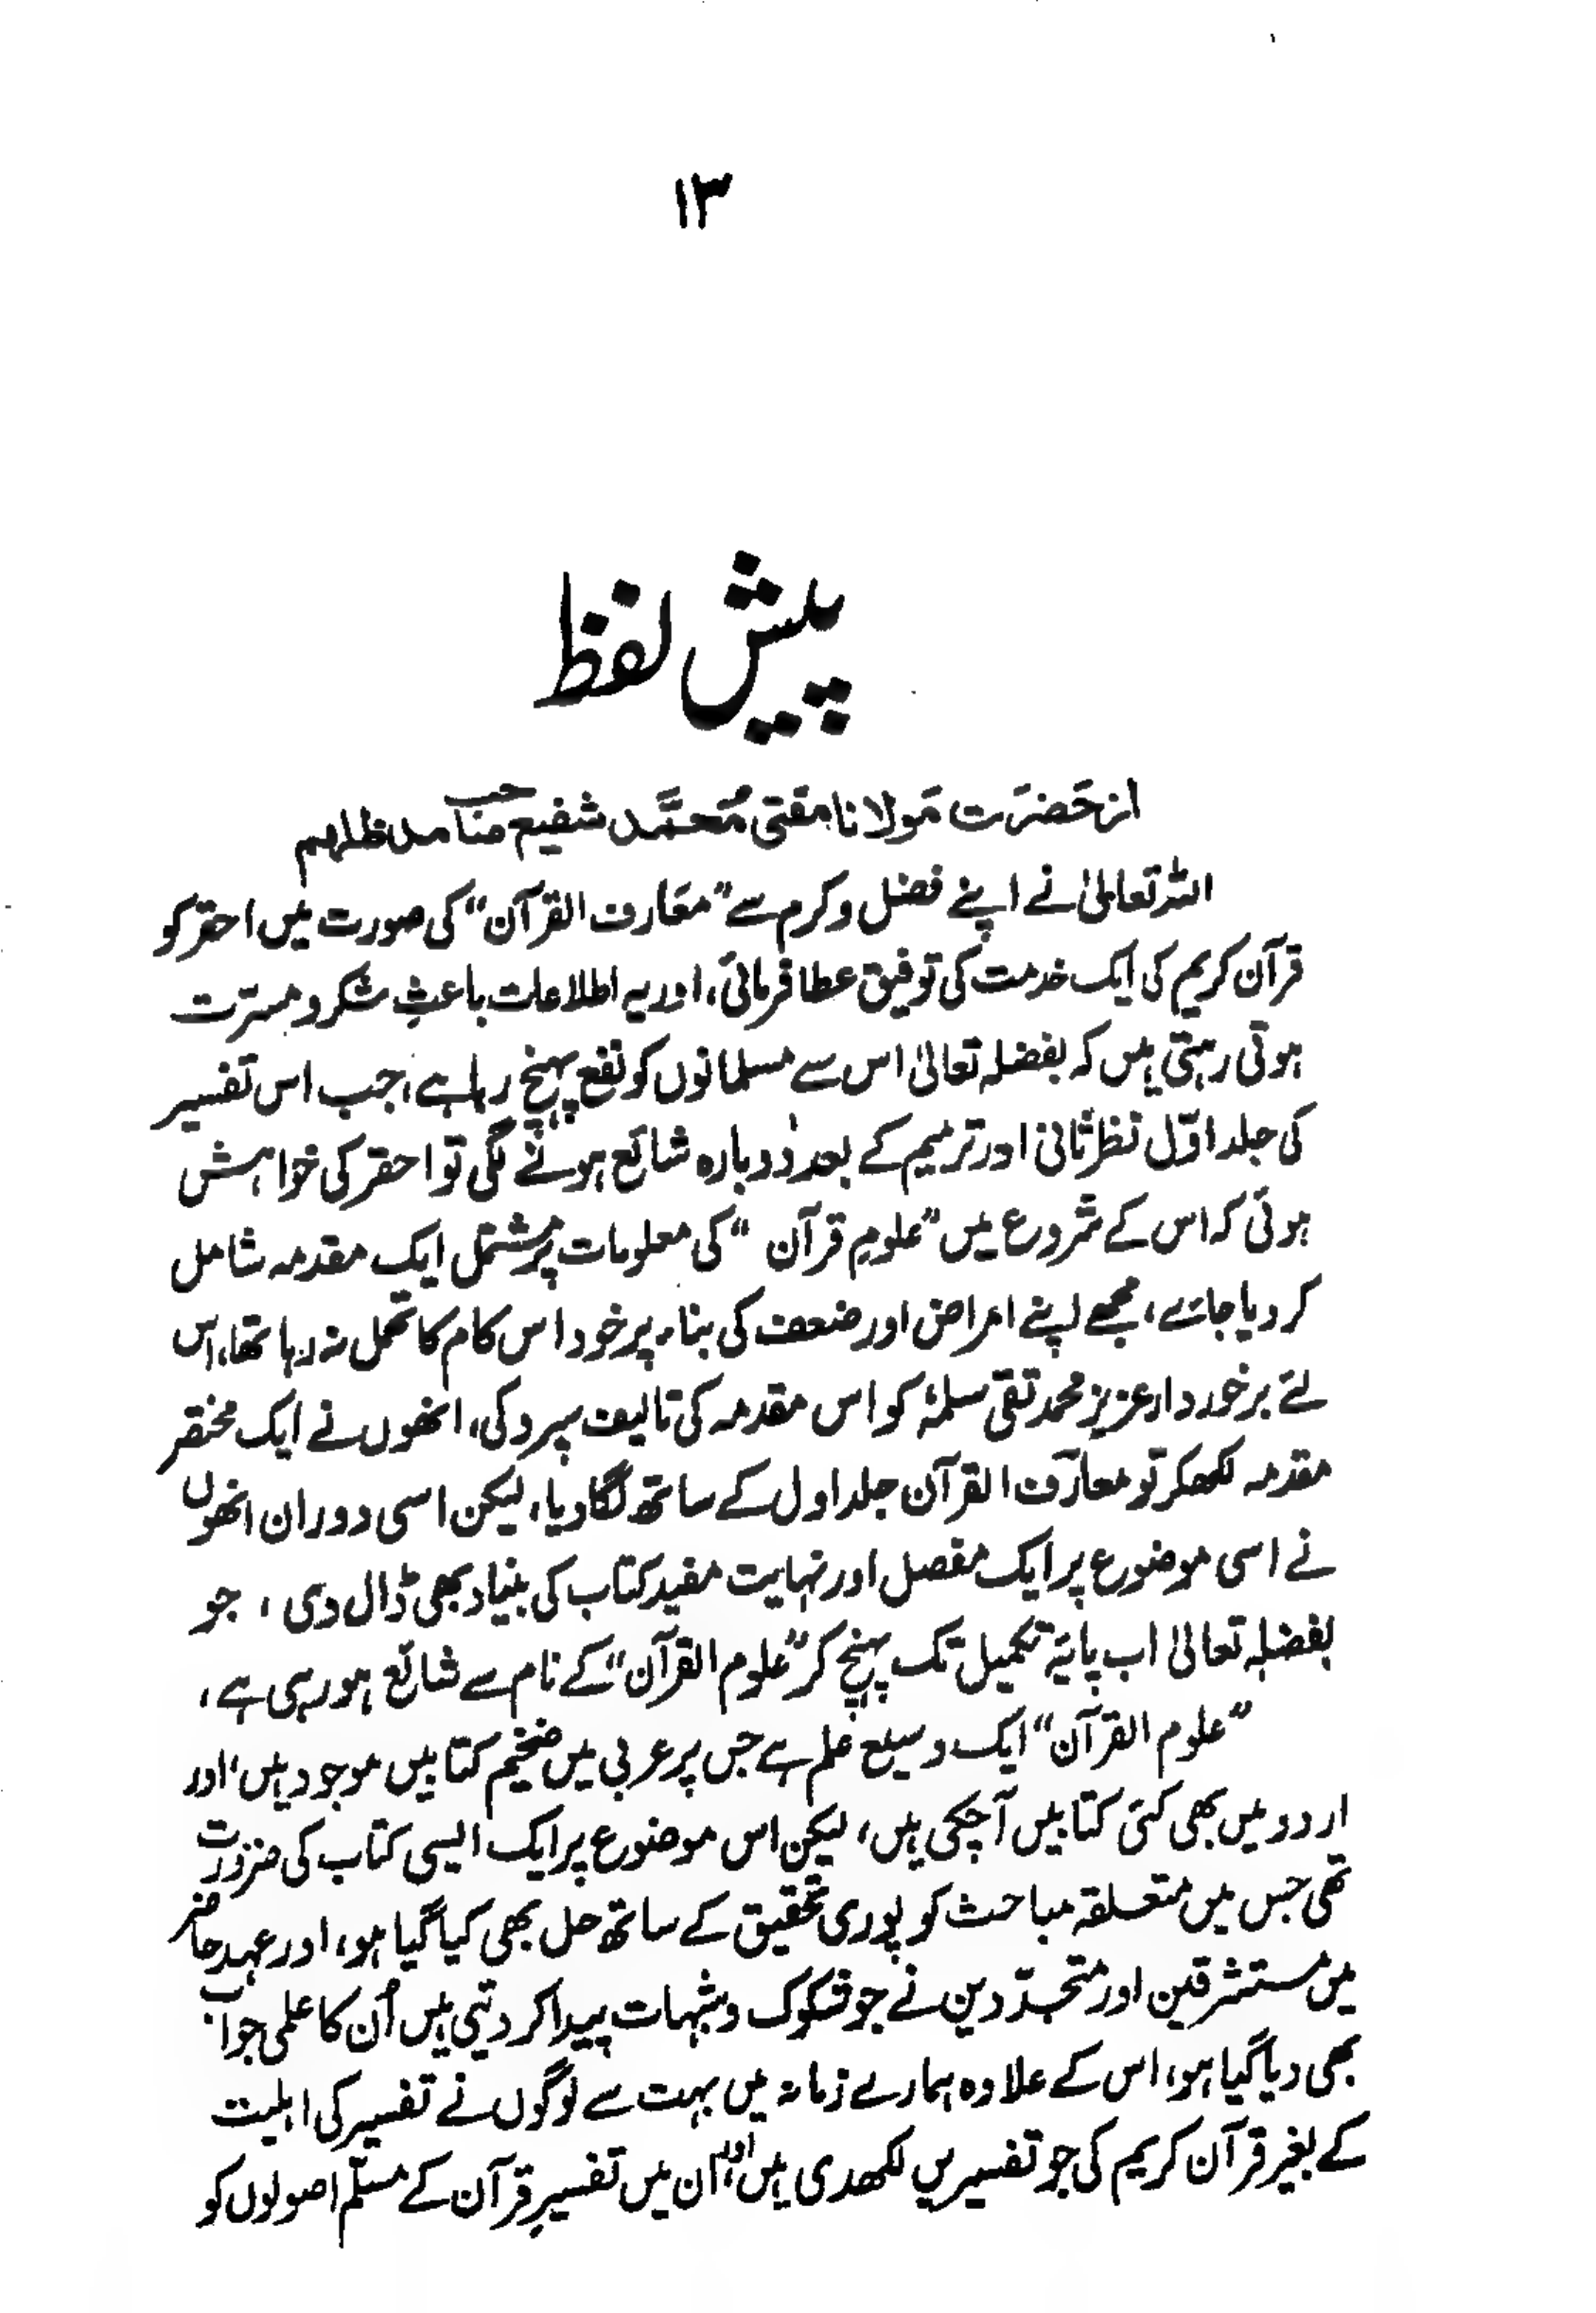 ۱۳
پیش لفظ
از حَضرَت مَولانا مفتی مُحمَّد شفیع صَاحب مد ظلہم
اللہ تعالیٰ نے اپنے فضل و کرم سے ”معَارف القرآن“ کی صورت میں احقر کو
قرآن کریم کی ایک خدمت کی توفیق عطا فرمائی، اور یہ اطلاعات باعثِ شکر و مسرّت
ہوتی رہتی ہیں کہ بفضلہ تعالیٰ اس سے مسلمانوں کو نفع پہنچ رہا ہے، جب اس تفسیر
کی جلد اوّل نظر ثانی اور ترمیم کے بعد دوبارہ شائع ہونے لگی تو احقر کی خواہش
ہوئی کہ اس کے شروع میں ”علومِ قرآن“ کی معلومات پر مشتمل ایک مقدمہ شامل
کر دیا جائے، مجھے اپنے امراض اور ضعف کی بناء پر خود اس کام کا تحمل نہ رہا تھا، اس
لئے برخوردار عزیز محمد تقی سلمہٗ کو اس مقدمہ کی تالیف سپرد کی، انھوں نے ایک مختصر
مقدمہ لکھکر تو معارف القرآن جلد اول کے ساتھ لگا دیا، لیکن اسی دوران انھوں
نے اسی موضوع پر ایک مفصل اور نہایت مفید کتاب کی بنیاد بھی ڈال دی، جو
بفضلہٖ تعالیٰ اب پایۂ تکمیل تک پہنچ کر ”علوم القرآن“ کے نام سے شائع ہو رہی ہے،
”علوم القرآن“ ایک وسیع علم ہے جس پر عربی میں ضخیم کتابیں موجود ہیں، اور
اردو میں بھی کئی کتابیں آچکی ہیں، لیکن اس موضوع پر ایک ایسی کتاب کی ضرورت
تھی جس میں متعلقہ مباحث کو پوری تحقیق کے ساتھ حل بھی کیا گیا ہو، اور عہد حاضر
میں مستشرقین اور متجدّدین نے جو شکوک و شبہات پیدا کر دئیے ہیں اُن کا علمی جواب
بھی دیا گیا ہو، اس کے علاوہ ہمارے زمانہ میں بہت سے لوگوں نے تفسیر کی اہلیت
کے بغیر قرآن کریم کی جو تفسیریں لکھدی ہیں، اور ان میں تفسیرِ قرآن کے مسلّم اصولوں کو